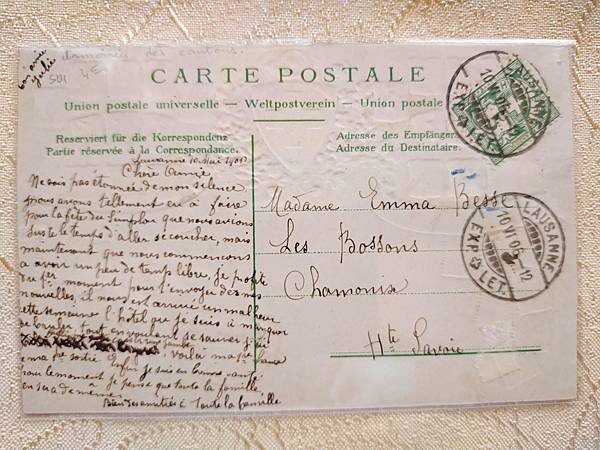 ton amie
Julie
Armoiries des cantons.
SUI 4E
CARTE POSTALE
Union postale universelle — Weltpostverein — Union postale
Reserviert für die Korrespondenz
Partie réservée à la Correspondance.
Adresse des Empfängers
Adresse du Destinataire.
LAUSANNE
EXP. LET.
Lausanne 10 Mai 190
Chère Amie
Ne sois pas étonnée de mon silence
nous avons tellement eu à faire
pour la fête du Simplon que nous avions
juste le temps d'aller se coucher, mais
maintenant que nous commencons
a avoir un peu de temps libre, je profite
du 1er moment pour t'envoyer de mes
nouvelles, il nous est arrivé un malheur
cette semaine l'hotel que je suis à manquer
de bruler, tout en voulant me sauver j'ai
voilà ma 1re
ma 1re sortie. Enfin je suis en bonne santé
pour le moment, je pense que toute la famille
en sera de même.
Bien des amitiés à Toute la famille
Madame Emma Besse
Les Bossons
Chamonix
Hte Savoie
LAUSANNE
10 VI 06. 12
EXP. LET.